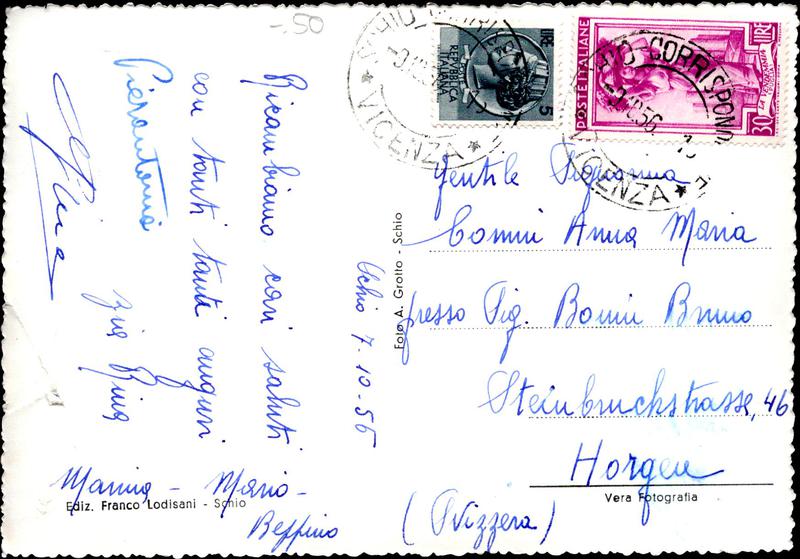 -.50
Schio 7-10-56
Ricambiamo cari saluti
con tanti tanti auguri
zia Rina
Pierantonio
Marina - Mario -
Beppino
Ediz. Franco Lodisani - Schio
Foto A. Grotto - Schio
LIRE 5
REPUBBLICA
ITALIANA
POSTE ITALIANE
LIRE 30
LA VENDEMMIA
VICENZA
CORRISPOND
VICENZA
Gentile Signorina
Comin Anna Maria
presso Sig. Bomin Bruno
Steinbruchstrasse, 46
Horgen
(Svizzera)
Vera Fotografia